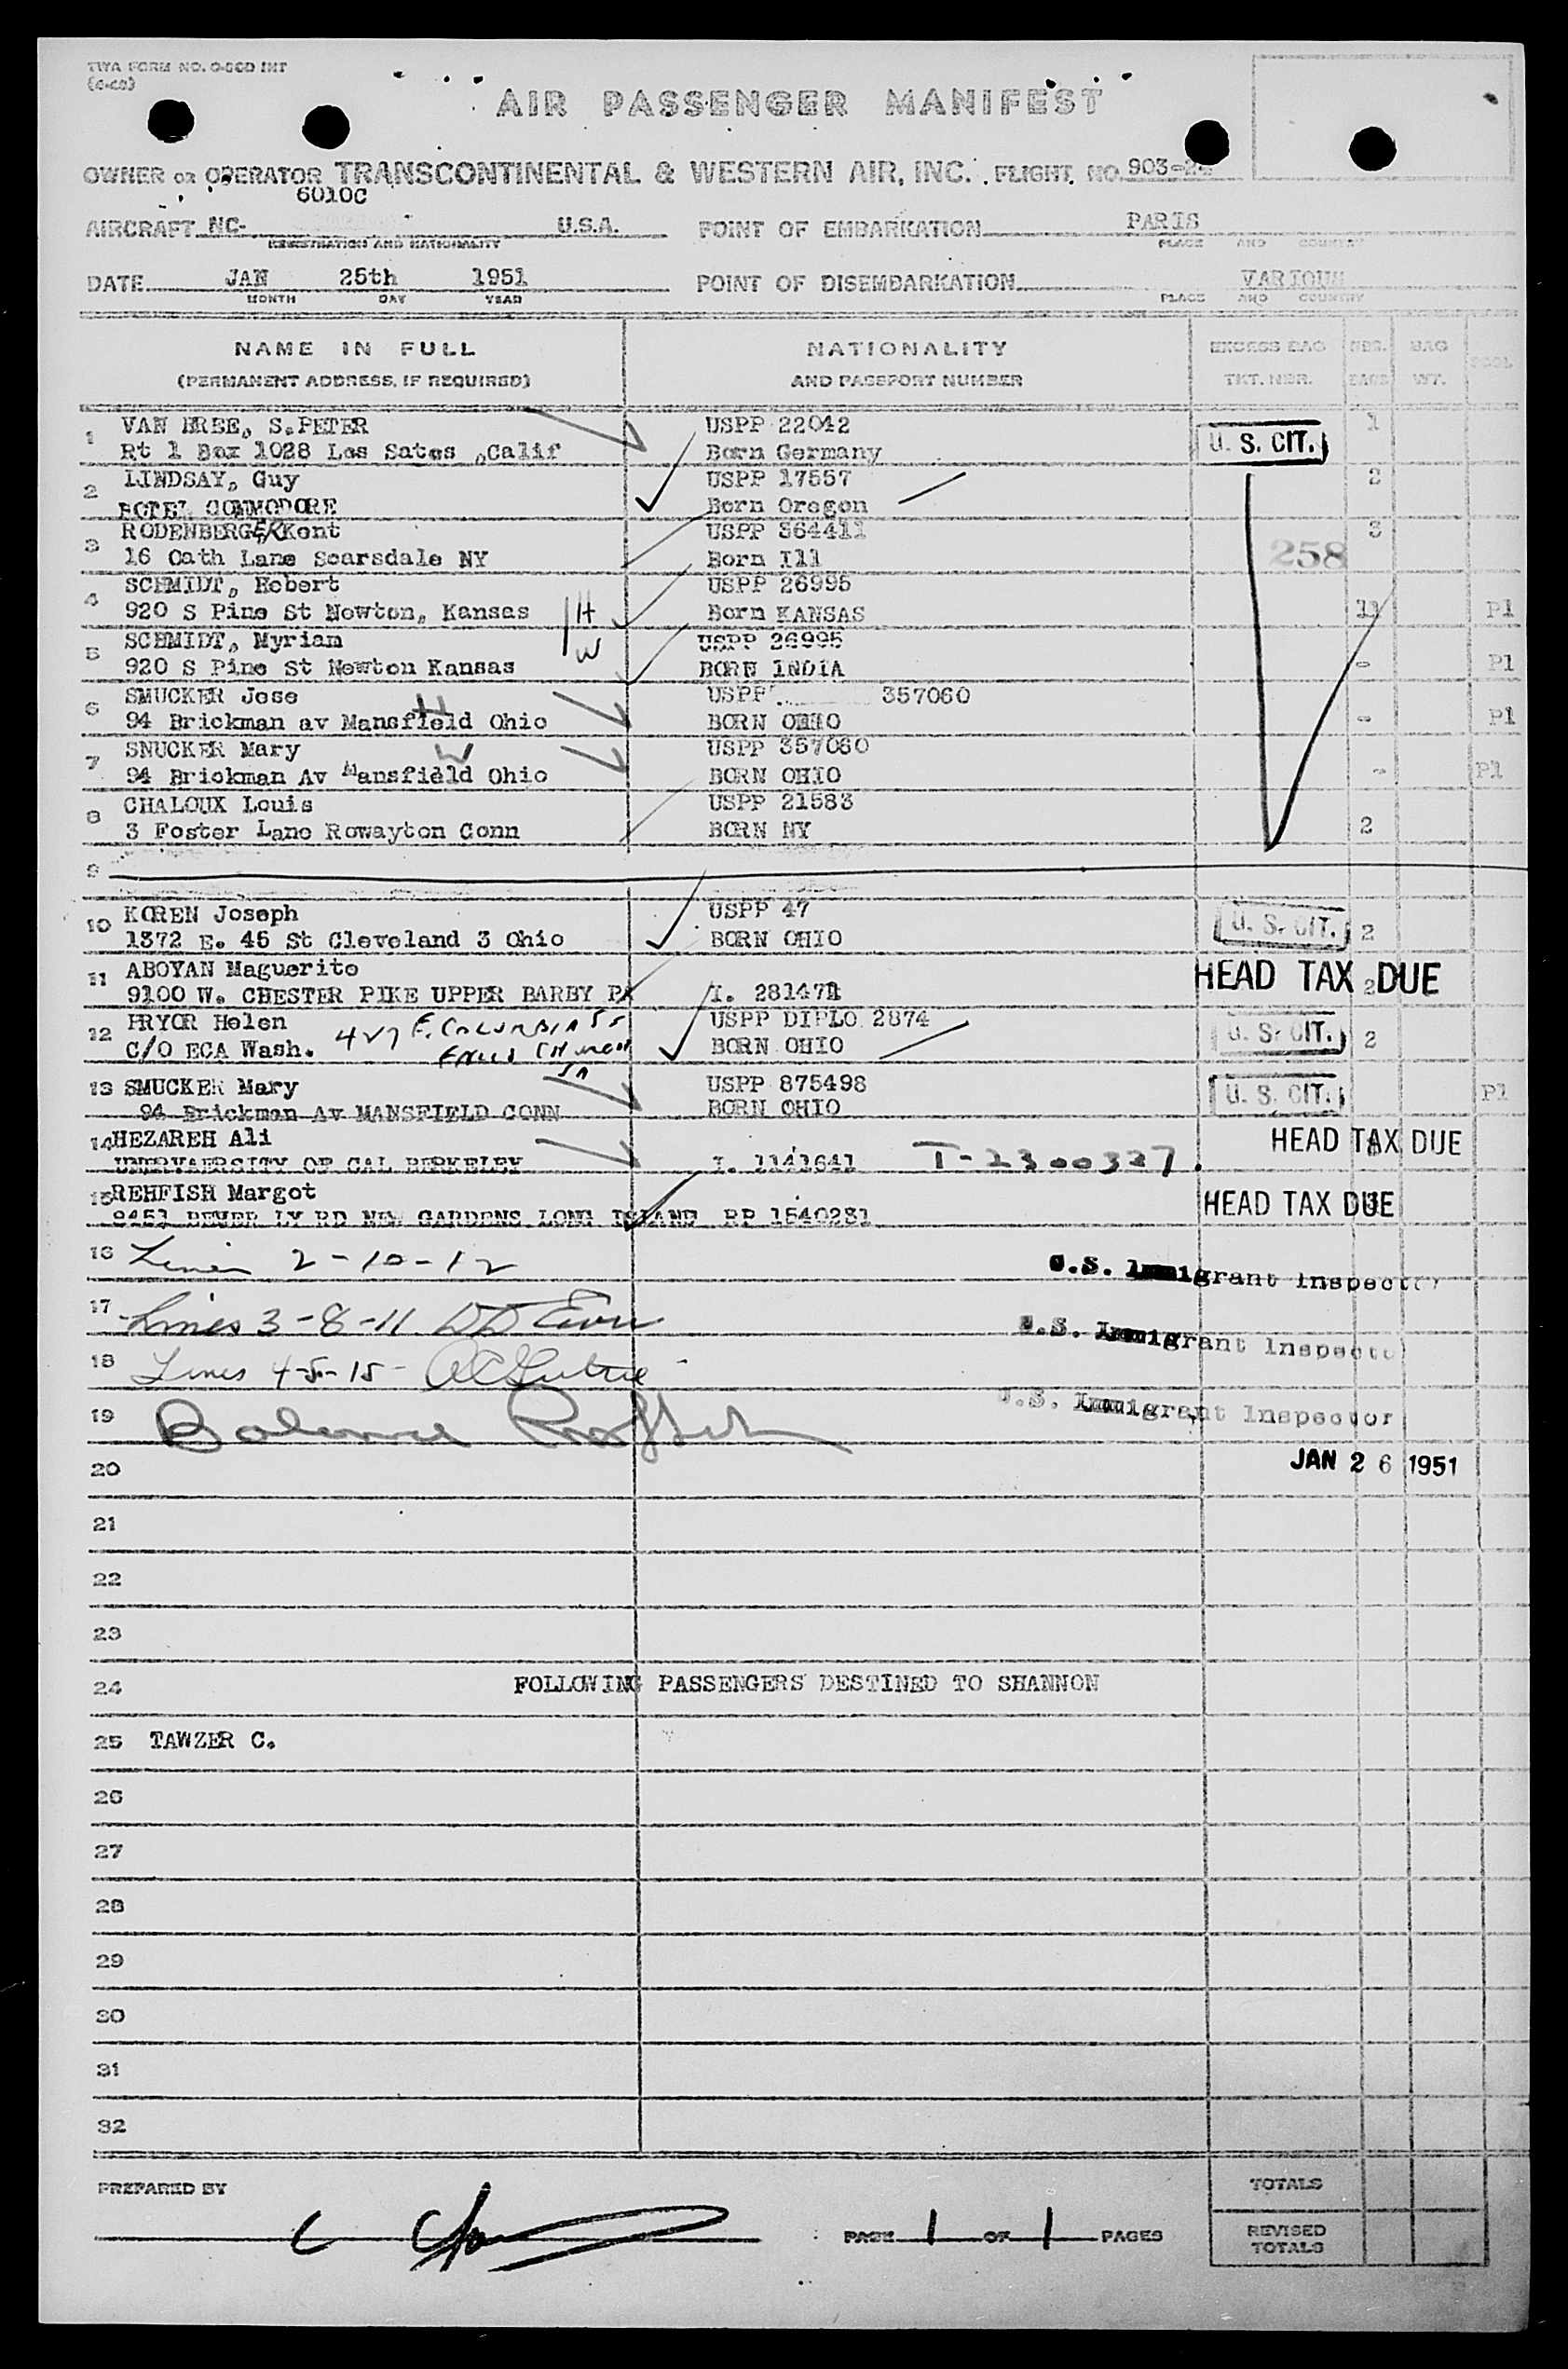 TWA FORM NO. O-SCD INT
AIR PASSENGER MANIFEST
OWNER OR OPERATOR TRANSCONTINENTAL & WESTERN AIR, INC. FLIGHT NO. 903-24
6010C
AIRCRAFT NC- U.S.A. POINT OF EMBARKATION PARIS
REGISTRATION AND NATIONALITY PLACE AND COUNTRY
DATE JAN 25th 1951 POINT OF DISEMBARKATION VARIOUS
MONTH DAY YEAR PLACE AND COUNTRY
NAME IN FULL NATIONALITY EXCESS BAG NBR. BAG POOL
(PERMANENT ADDRESS, IF REQUIRED) AND PASSPORT NUMBER TKT. NBR. BAGS WT.
1 VAN BREE, S.PETER USPP 22042 1
Rt 1 Box 1028 Los Satos ,Calif Born Germany U. S. CIT.
2 LINDSAY, Guy USPP 17557 2
HOTEL COMMODORE Born Oregon
3 RODENBERG Kent USPP 364411 3
16 Cath Lane Scarsdale NY Born Ill 258
4 SCHMIDT, Robert USPP 26995
920 S Pine St Newton, Kansas H Born KANSAS 11 Pl
5 SCHMIDT, Myriam W USPP 26995
920 S Pine St Newton Kansas BORN INDIA - Pl
6 SMUCKER Jese H USPP 357060
94 Brickman av Mansfield Ohio BORN OHIO - Pl
7 SNUCKER Mary W USPP 357060
94 Brickman Av Mansfield Ohio BORN OHIO - Pl
8 CHALOUX Louis USPP 21583
3 Foster Lane Rowayton Conn BORN NY 2
9
10 KOREN Joseph USPP 47
1372 E. 45 St Cleveland 3 Ohio BORN OHIO U. S. CIT. 2
11 ABOYAN Maguerite
9100 W. CHESTER PIKE UPPER BARBY PA I. 281471 HEAD TAX DUE 2
12 PRYOR Helen 427 E. COLUMBIA ST USPP DIPLO 2874
C/O ECA Wash. FALLS CHURCH BORN OHIO U. S. CIT. 2
13 SMUCKER Mary USPP 875498
94 Brickman Av MANSFIELD CONN BORN OHIO U. S. CIT. Pl
14 HEZAREH Ali HEAD TAX DUE
UNERVAERSITY OF CAL BERKELEY I. 1141641 T-2300327.
15 REHFISH Margot HEAD TAX DUE
9451 BEVER LY RD NEW GARDENS LONG ISLAND RP 1540281
16 Lines 2-10-12 U.S. Immigrant Inspector
17 Lines 3-8-11 U.S. Immigrant Inspector
18 Lines 4-5-15
19 Balance U.S. Immigrant Inspector
20 JAN 26 1951
21
22
23
24 FOLLOWING PASSENGERS DESTINED TO SHANNON
25 TAWZER C.
26
27
28
29
30
31
32
PREPARED BY TOTALS
PAGE 1 OF 1 PAGES REVISED TOTALS